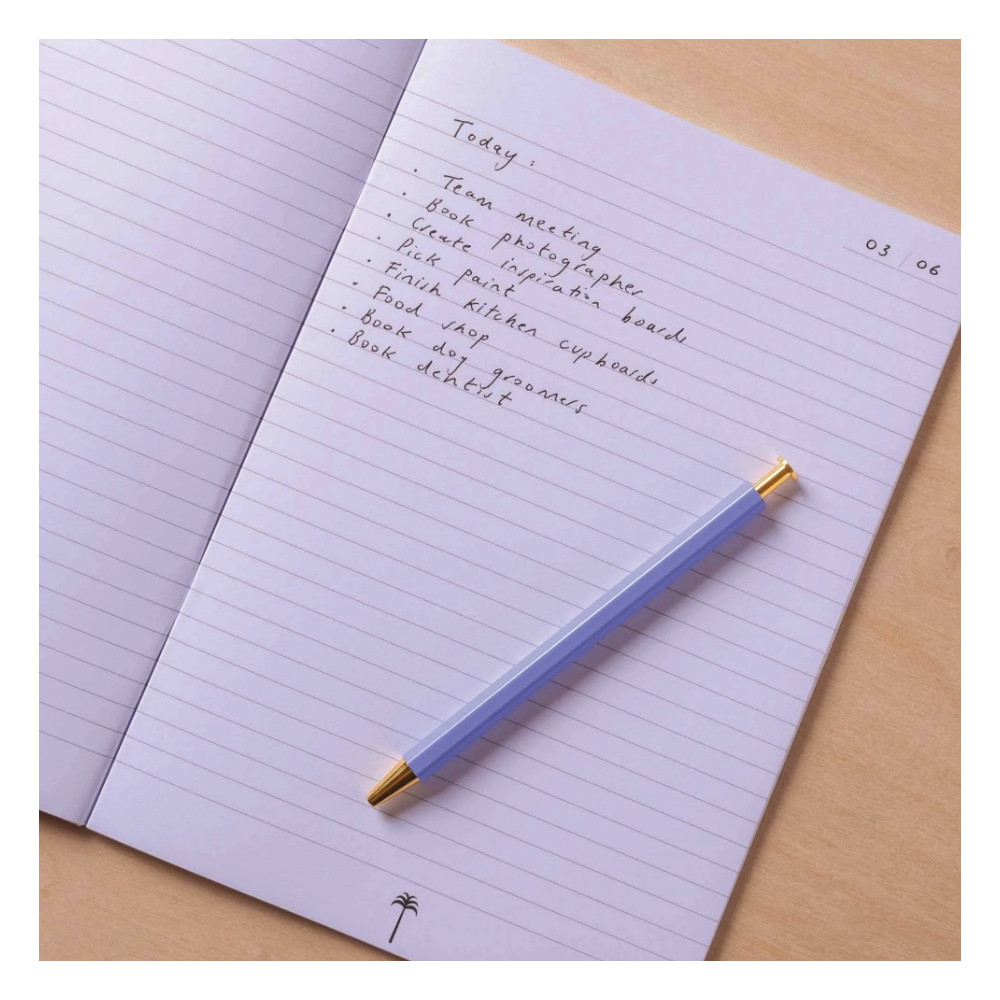 Today:
· Team meeting
· Book photographer
· Create inspiration boards
· Pick paint
· Finish kitchen cupboards
· Food shop
· Book dog groomers
· Book dentist
03 / 06